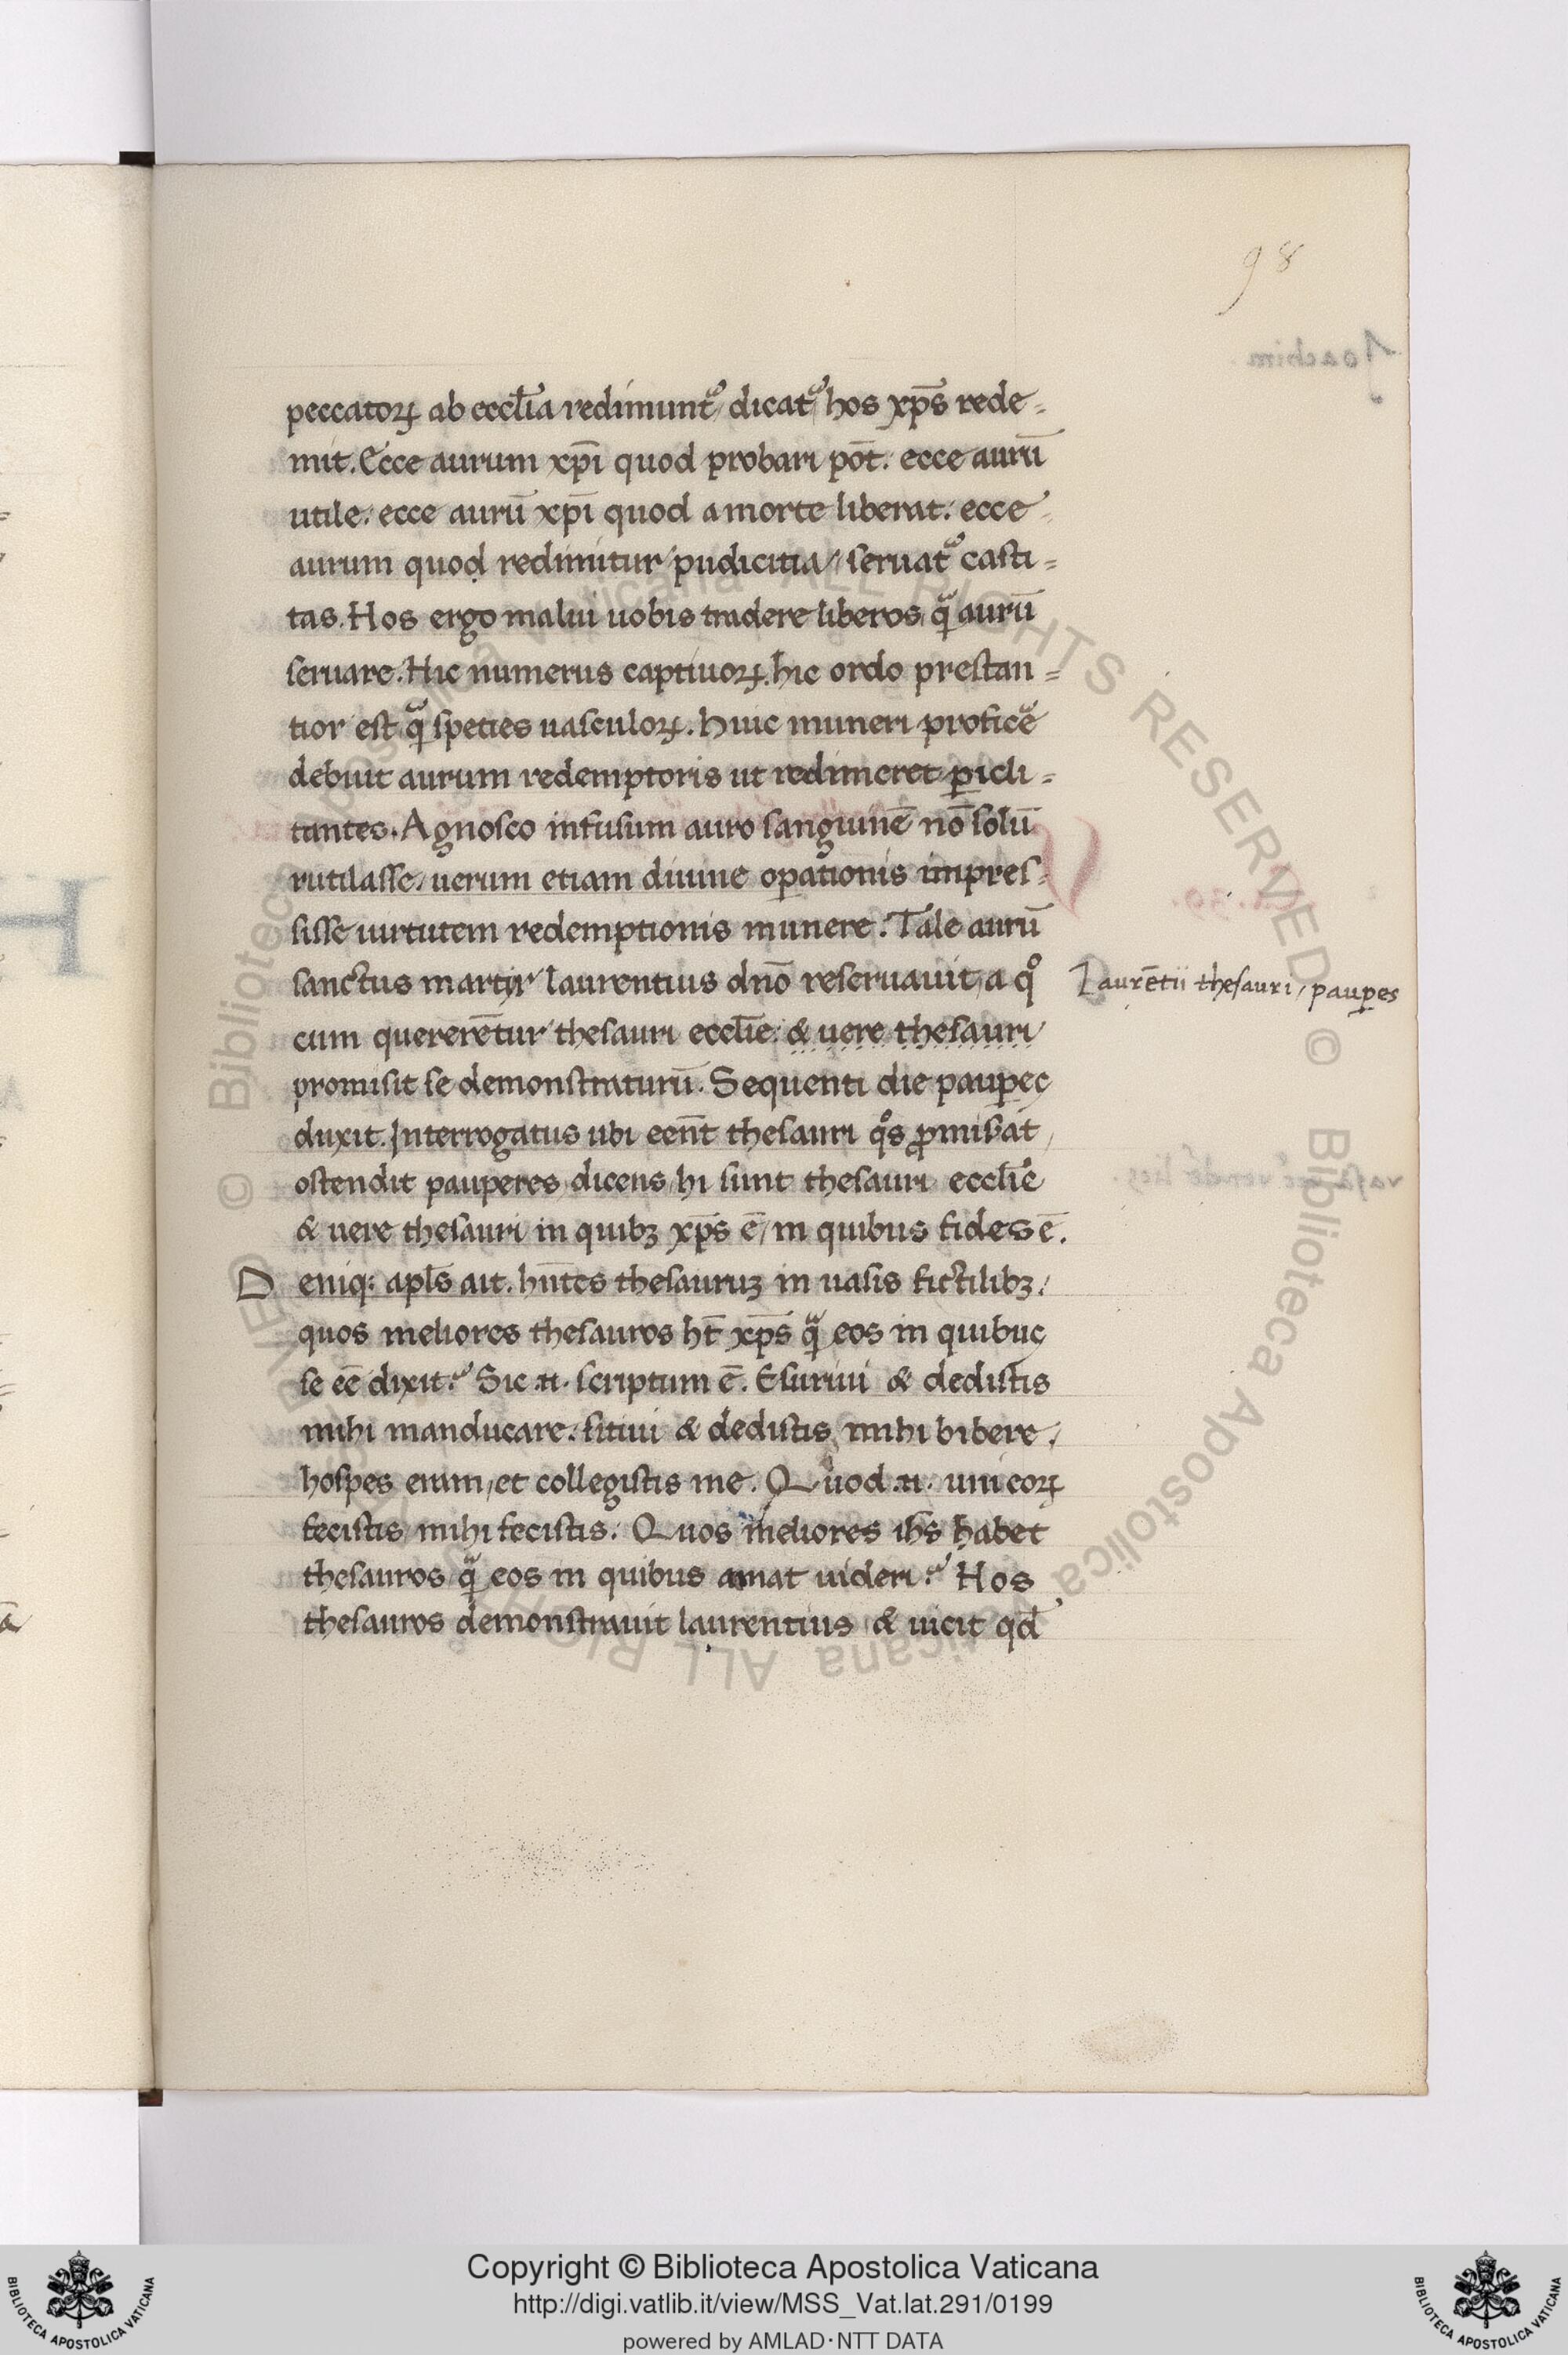 98
peccatoꝝ ab eccl̄ia redimunt᷑ dicat᷑ hos xp̄s rede=
mit. Ecce aurum xp̄i quod probari pōt: ecce aurū
utile: ecce aurū xp̄i quod a morte liberat: ecce
aurum quod redimitur pudicitia / seruat᷑ casti=
tas. Hos ergo malui uobis tradere liberos qᷓ aurū
seruare. Hic numerus captiuoꝝ. hic ordo prestan=
tior est qᷓ speties uasculoꝝ. Huic muneri proficē
debuit aurum redemptoris ut redimeret ꝑicli=
tantes. Agnosco infusum auro sanguinē nō solū
rutilasse / uerum etiam diuine oꝑationis impres=
sisse uirtutem redemptionis munere. Tale aurū
sanctus martyr laurentius dn̄o reseruauit, a qͦ
Laurētii thesauri / pauꝑes
cum quererētur thesauri eccl̄ie: & uere thesauri
promisit se demonstraturū. Sequenti die pauꝑes
duxit. Interrogatus ubi eēnt thesauri qͦs ꝓmiserat
ostendit pauperes dicens hi sunt thesauri eccl̄ie
& uere thesauri in quibꝫ xp̄s ē / in quibus fides ē.
Deniqꝫ apl̄s ait. hn̄tes thesauruꝫ in uasis fictilibꝫ /
quos meliores thesauros ht̄ xp̄s qᷓ eos in quibus
se eē dixit? Sic .n. scriptum ē. Esuriui & dedistis
mihi manducare: sitiui & dedistis mihi bibere /
hospes eram / et collegistis me. Quod .n. uni eoꝝ
fecistis mihi fecistis. Quos meliores ih̄s habet
thesauros qᷓ eos in quibus amat uideri? Hos
thesauros demonstrauit laurentius & uicit qd̄
Copyright © Biblioteca Apostolica Vaticana
http://digi.vatlib.it/view/MSS_Vat.lat.291/0199
powered by AMLAD·NTT DATA
BIBLIOTECA APOSTOLICA VATICANA
BIBLIOTECA APOSTOLICA VATICANA